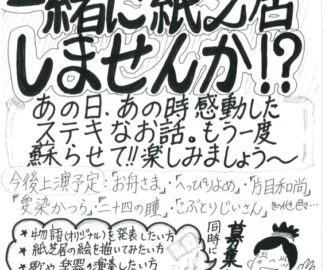 一緒に紙芝居
しませんか!?
あの日、あの時感動した
ステキなお話。もう一度
蘇らせて!!楽しみましょう〜
今後上演予定:「お舟さま」・「へっぴりよめ」・「片目和尚」
「愛染かつら」・「二十四の瞳」・「こぶとりじいさん」その他色々…
★物語(オリジナル)を発表したい方
★紙芝居の絵を描いてみたい方
★歌や楽器を演奏したい方
同時に
募集